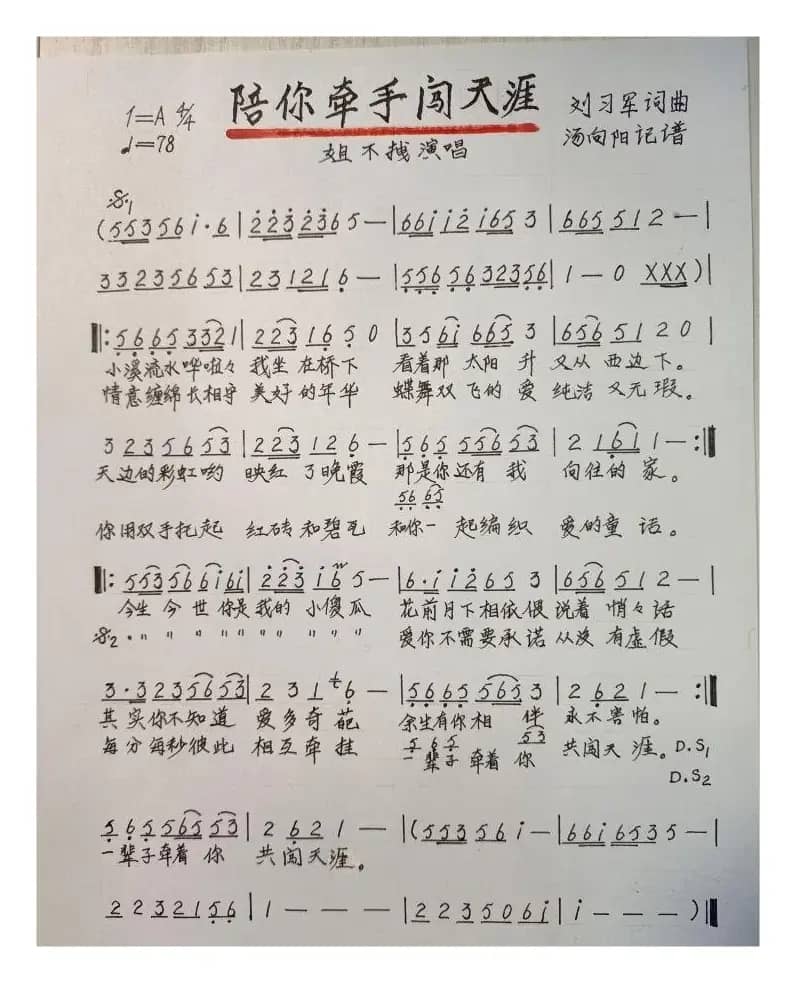 陪你牵手闯天涯
1=A 4/4
♩=78
刘习军词曲
汤向阳记谱
姐不拽演唱
𝄋1
(553561·6|2232365—|66112165 3|665512—|
33235653|231216—|5565632356|1—0 XXX)|
‖:56653321|2231650|35616653|6565120|
小溪流水哗啦々 我坐在桥下 看着那 太阳 升 又从 西边 下。
情意缠绵长相守 美好的年华 蝶舞双飞的 爱 纯洁 又无 瑕。
3235653|223126—|5655653|21611—:‖
天边的彩虹哟 映红 了晚霞 那是你还有 我 向往的 家。
56 65
你用双手托起 红砖和碧瓦 和你一 起编织 爱的童 话。
‖:553566161|223165—|6·11265 3|5656512—|
今生 今 世 你是 我的 小傻瓜 花前月下相依偎 说着 悄々话
𝄋2 · 〃 〃 〃 〃 〃 〃 〃 〃 〃 爱你不需要承诺 从没 有虚假
3·3235653|2316—|56655653|2621—:‖
其 实你不知道 爱多奇葩 余生有你相 伴 永不害怕。
每分每秒彼此 相互牵挂 一辈子牵着 你 共闯天 涯。D.S1
5 6 5 53
D.S2
56556553|2621—|(553561—|66165 35—|
一辈子牵着 你 共闯天涯。
2232156|1———|2235061|1———)‖